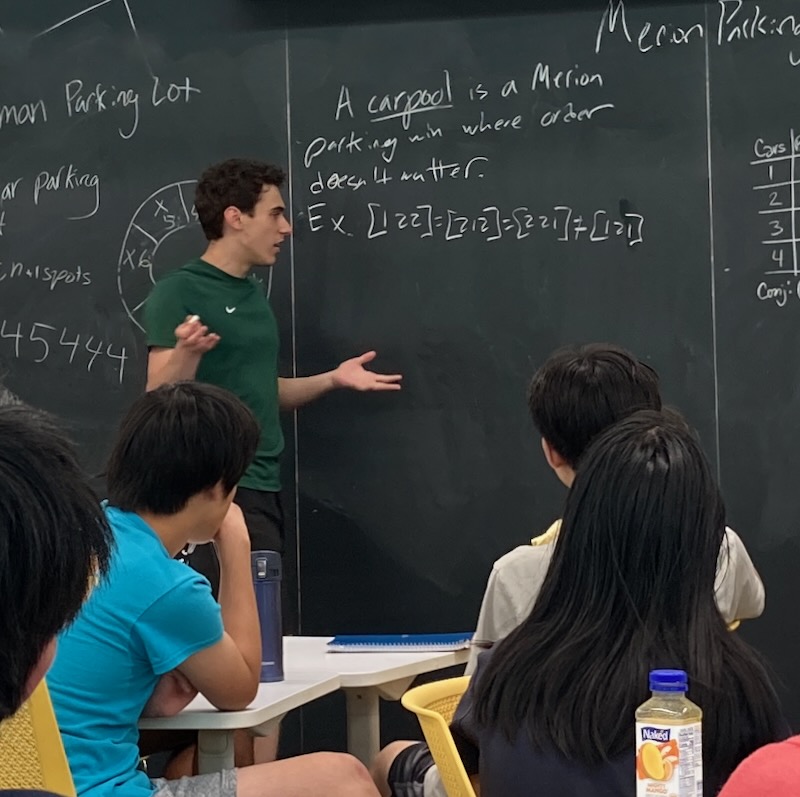 man Parking Lot
ar parking
n-1 spots
45444
x 5
x 6
A carpool is a Merion
parking win where order
doesn't matter.
Ex. [122]=[212]=[221]≠[121]
Merion Parking
Cars
1
2
3
4
Conj:
Naked
MIGHTY MANGO